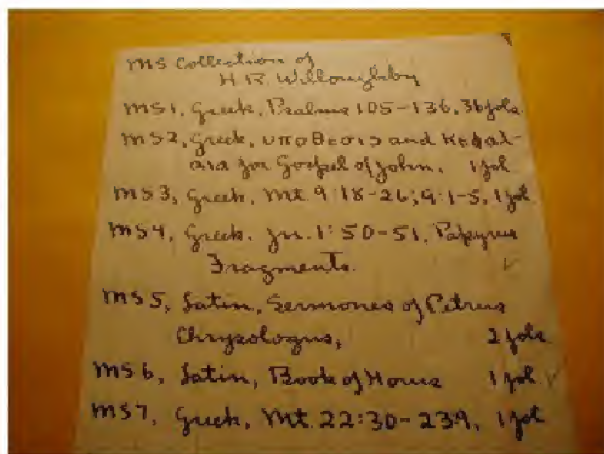 MS Collection of
H R Willoughby
MS1, Greek, Psalms 105-136, 36 fols.
MS2, Greek, υποθεσις and Κεφαλ-
αια for Gospel of John, 1 fol
MS3, Greek, Mt 9:18-26; 9:1-5, 1 fol.
MS4, Greek. Jn. 1:50-51, Papyrus
Fragments.
MS5, Latin, Sermones of Petrus
Chrysologus, 2 fols
MS6, Latin, Book of Hours 1 fol
MS7, Greek, Mt. 22:30-239, 1 fol